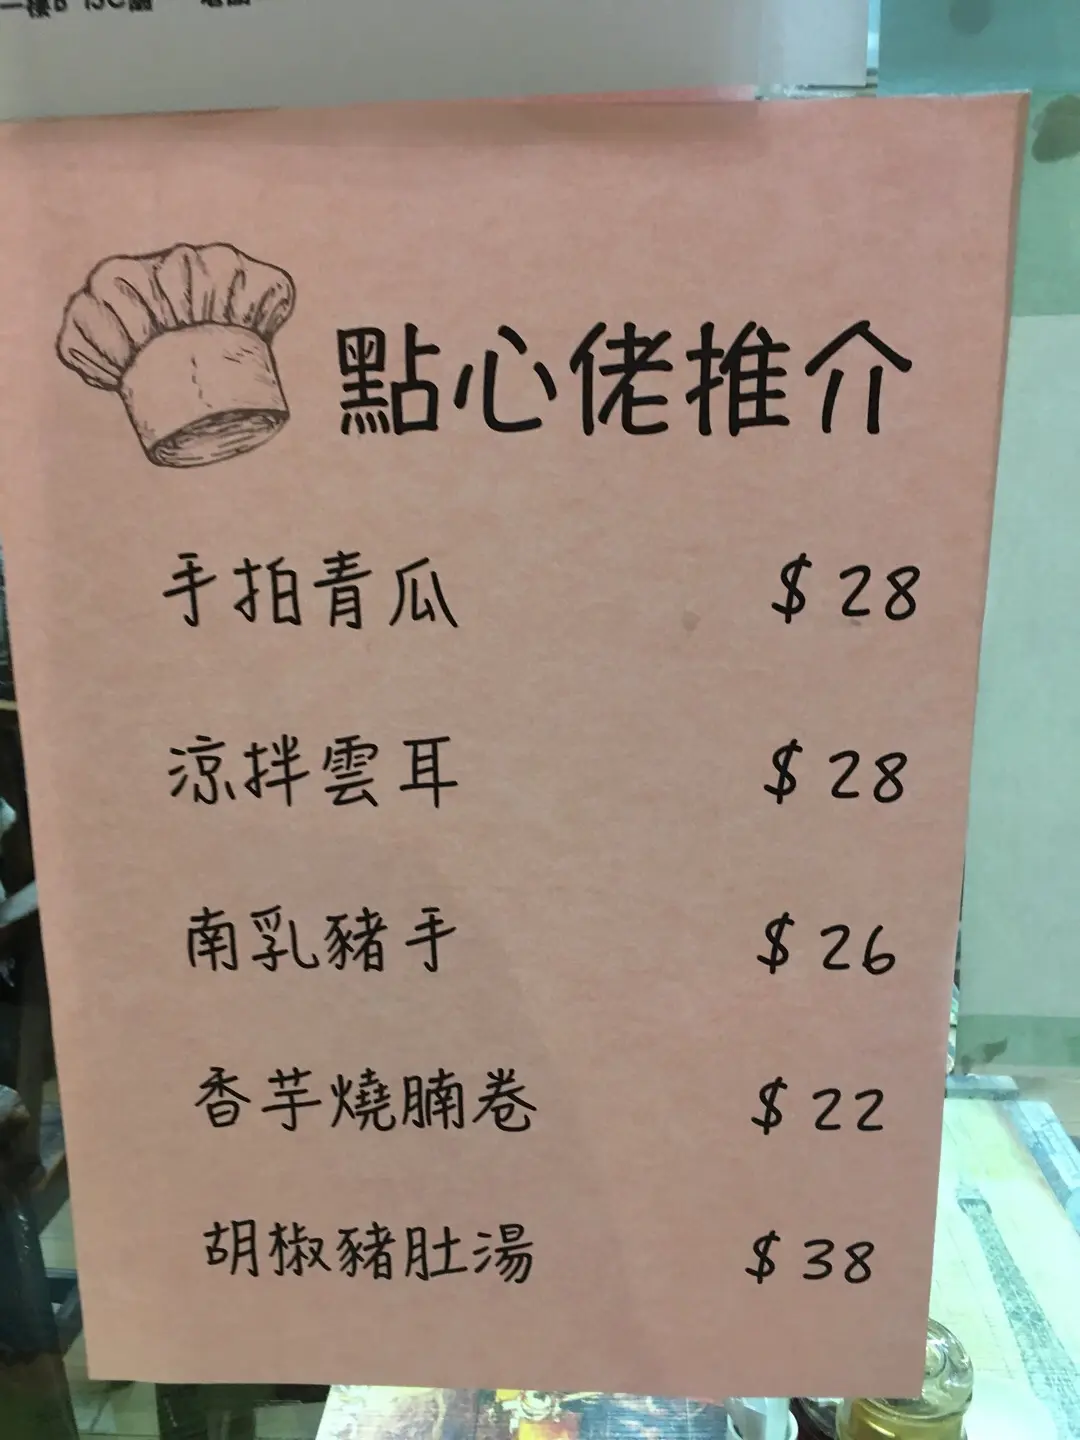 點心佬推介
手拍青瓜 $28
涼拌雲耳 $28
南乳豬手 $26
香芋燒腩卷 $22
胡椒豬肚湯 $38